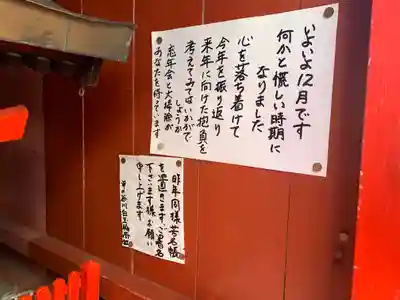 いよいよ12月です
何かと慌しい時期に
なりました
心を落ち着けて
今年を振り返り
来年に向けた抱負を
考えてみてはいかがで
しょうか
忘年会と大掃除が
あなたを待っています
昨年同様芳名帳
を置きますご芳名
下さいます様お願い
申し上げます